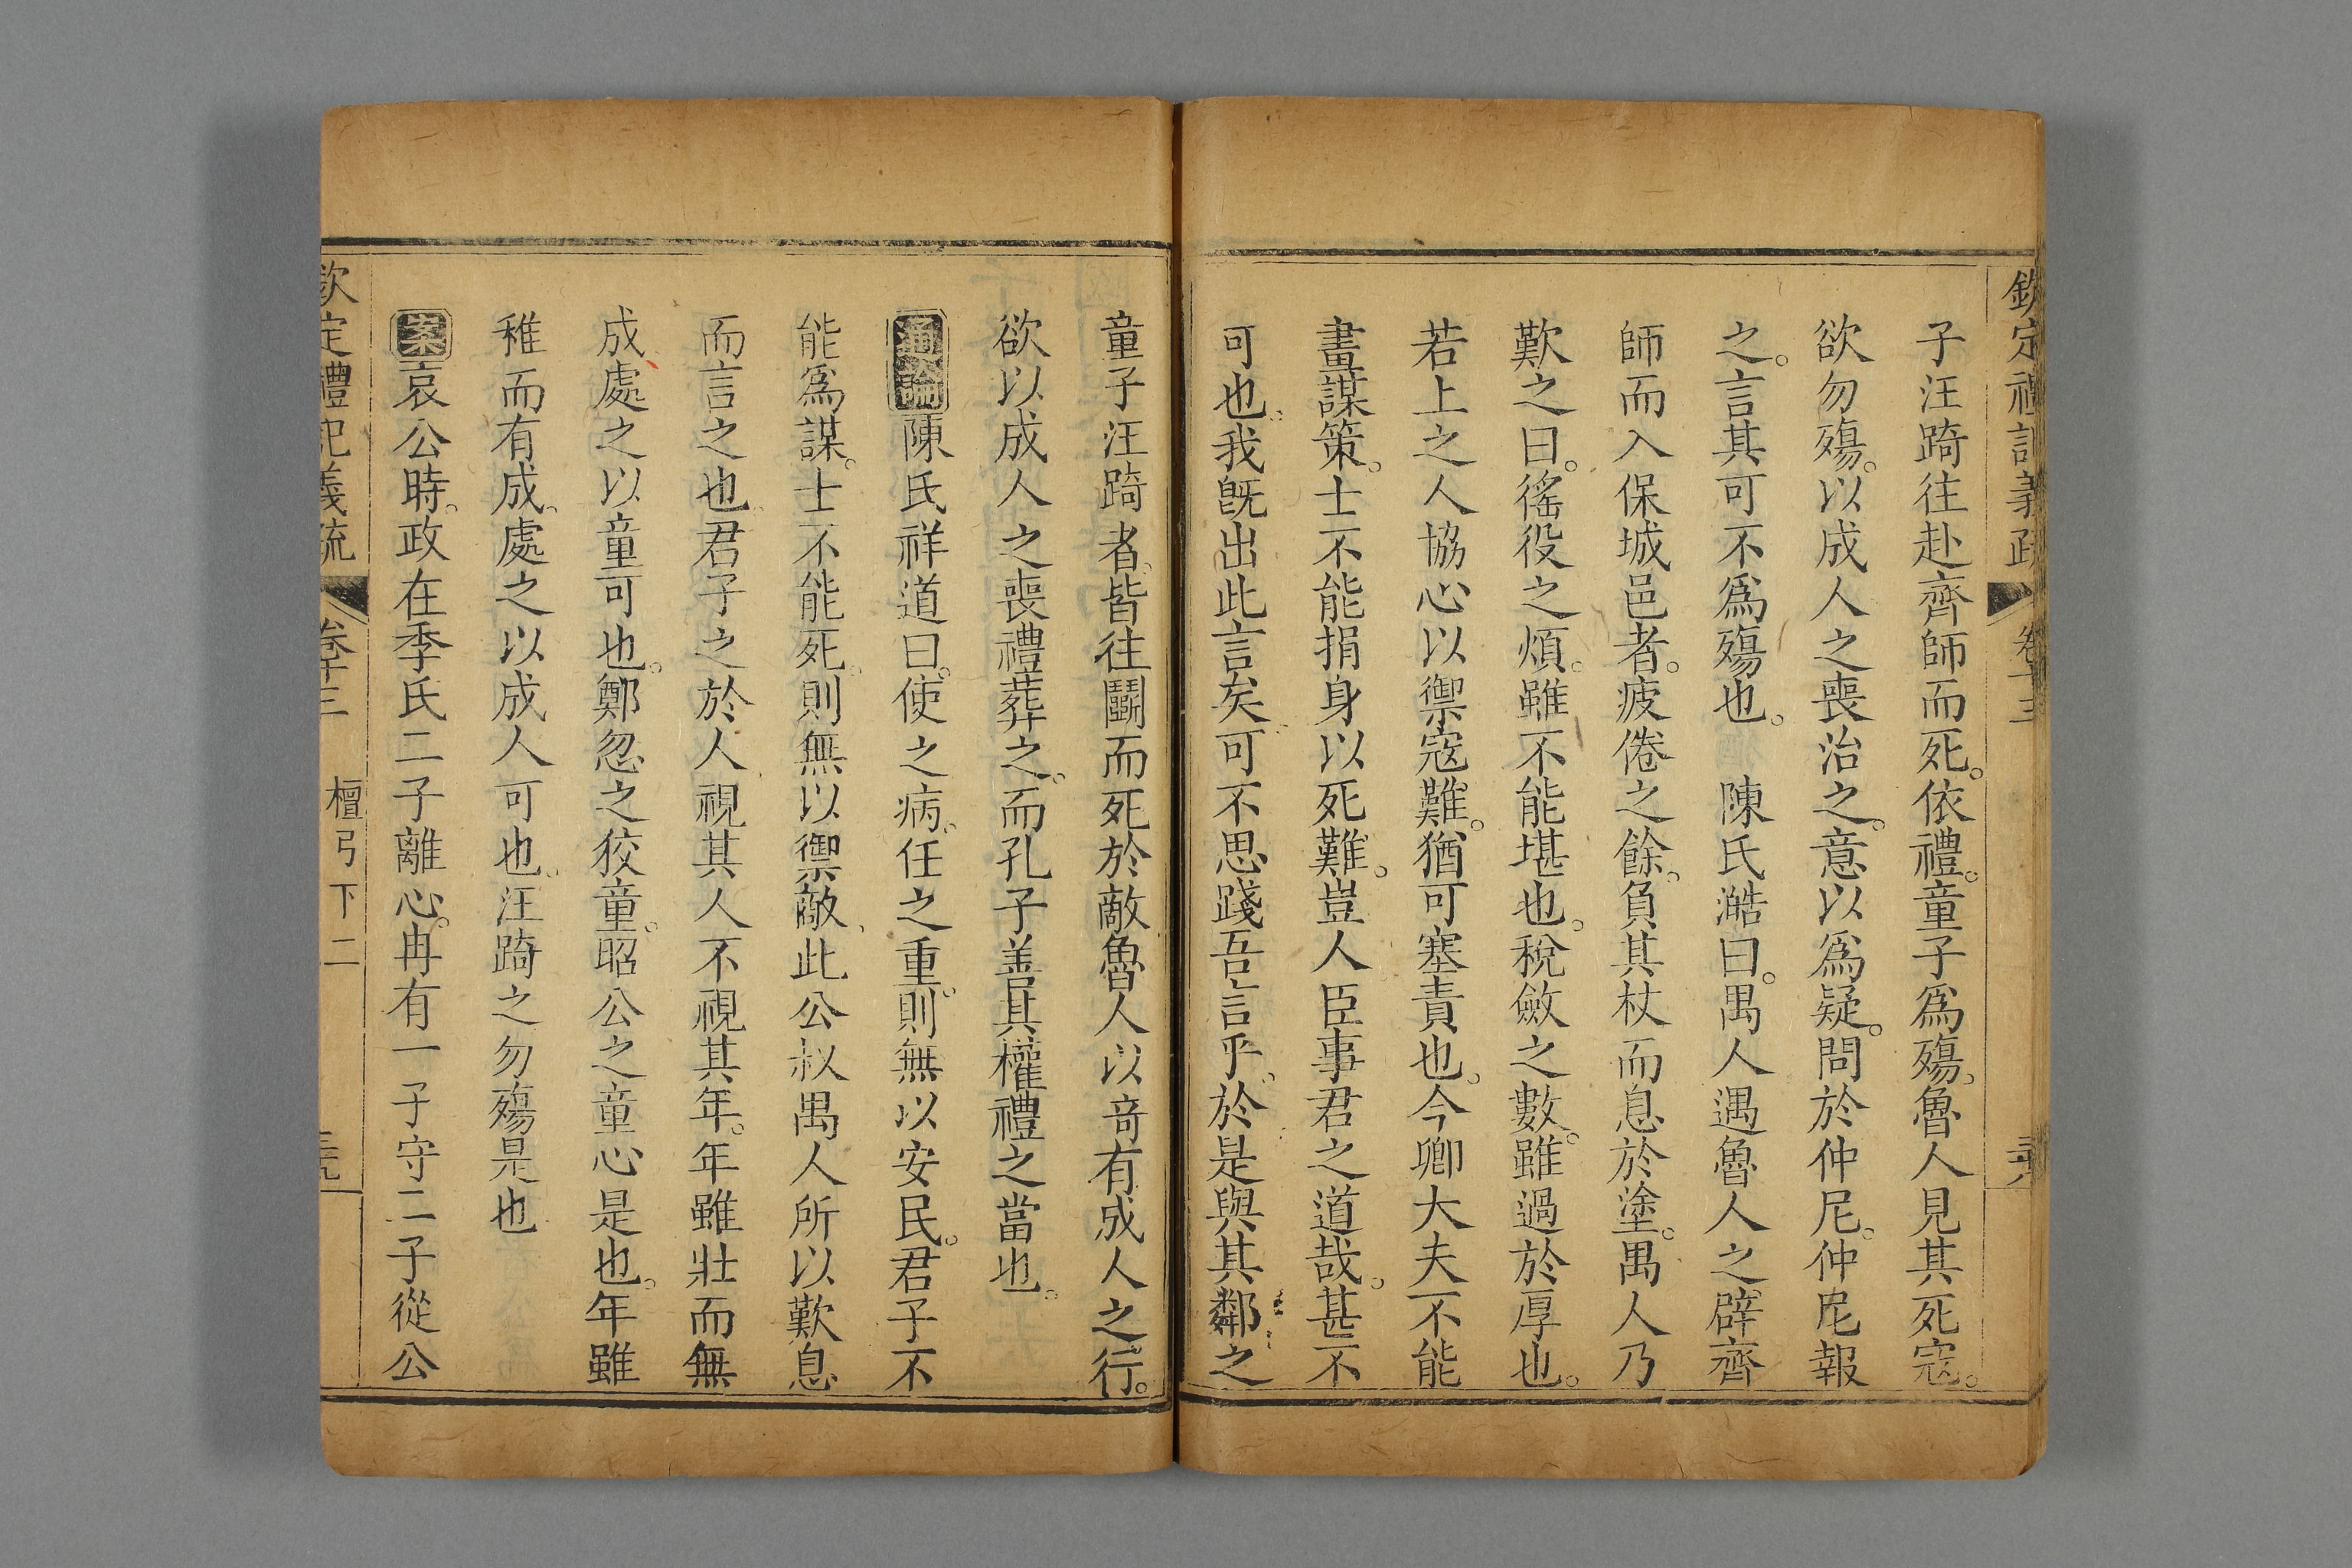 欽定禮記義疏 卷十三
子汪踦往赴齊師而死。依禮。童子爲殤。魯人見其死寇。
欲勿殤。以成人之喪治之。意以爲疑。問於仲尼。仲尼報
之。言其可不爲殤也。 陳氏澔曰。禺人遇魯人之辟齊
師而入保城邑者。疲倦之餘。負其杖而息於塗。禺人乃
歎之曰。徭役之煩。雖不能堪也。稅斂之數。雖過於厚也。
若上之人協心以禦寇難。猶可塞責也。今卿大夫不能
畫謀策。士不能捐身以死難。豈人臣事君之道哉。甚不
可也。我旣出此言矣。可不思踐吾言乎。於是與其鄰之
童子汪踦者。皆往鬭而死於敵魯人以竒有成人之行。
欲以成人之喪禮葬之。而孔子善其權禮之當也。
通論陳氏祥道曰。使之病。任之重。則無以安民。君子不
能爲謀。士不能死。則無以禦敵。此公叔禺人所以歎息
而言之也。君子之於人視其人不視其年。年雖壯而無
成處之以童可也。鄭忽之狡童。昭公之童心是也。年雖
稚而有成。處之以成人可也。汪踦之勿殤是也
案哀公時。政在季氏二子離心。冉有一子守二子從公
欽定禮記義疏 卷十三 檀弓下二 三九